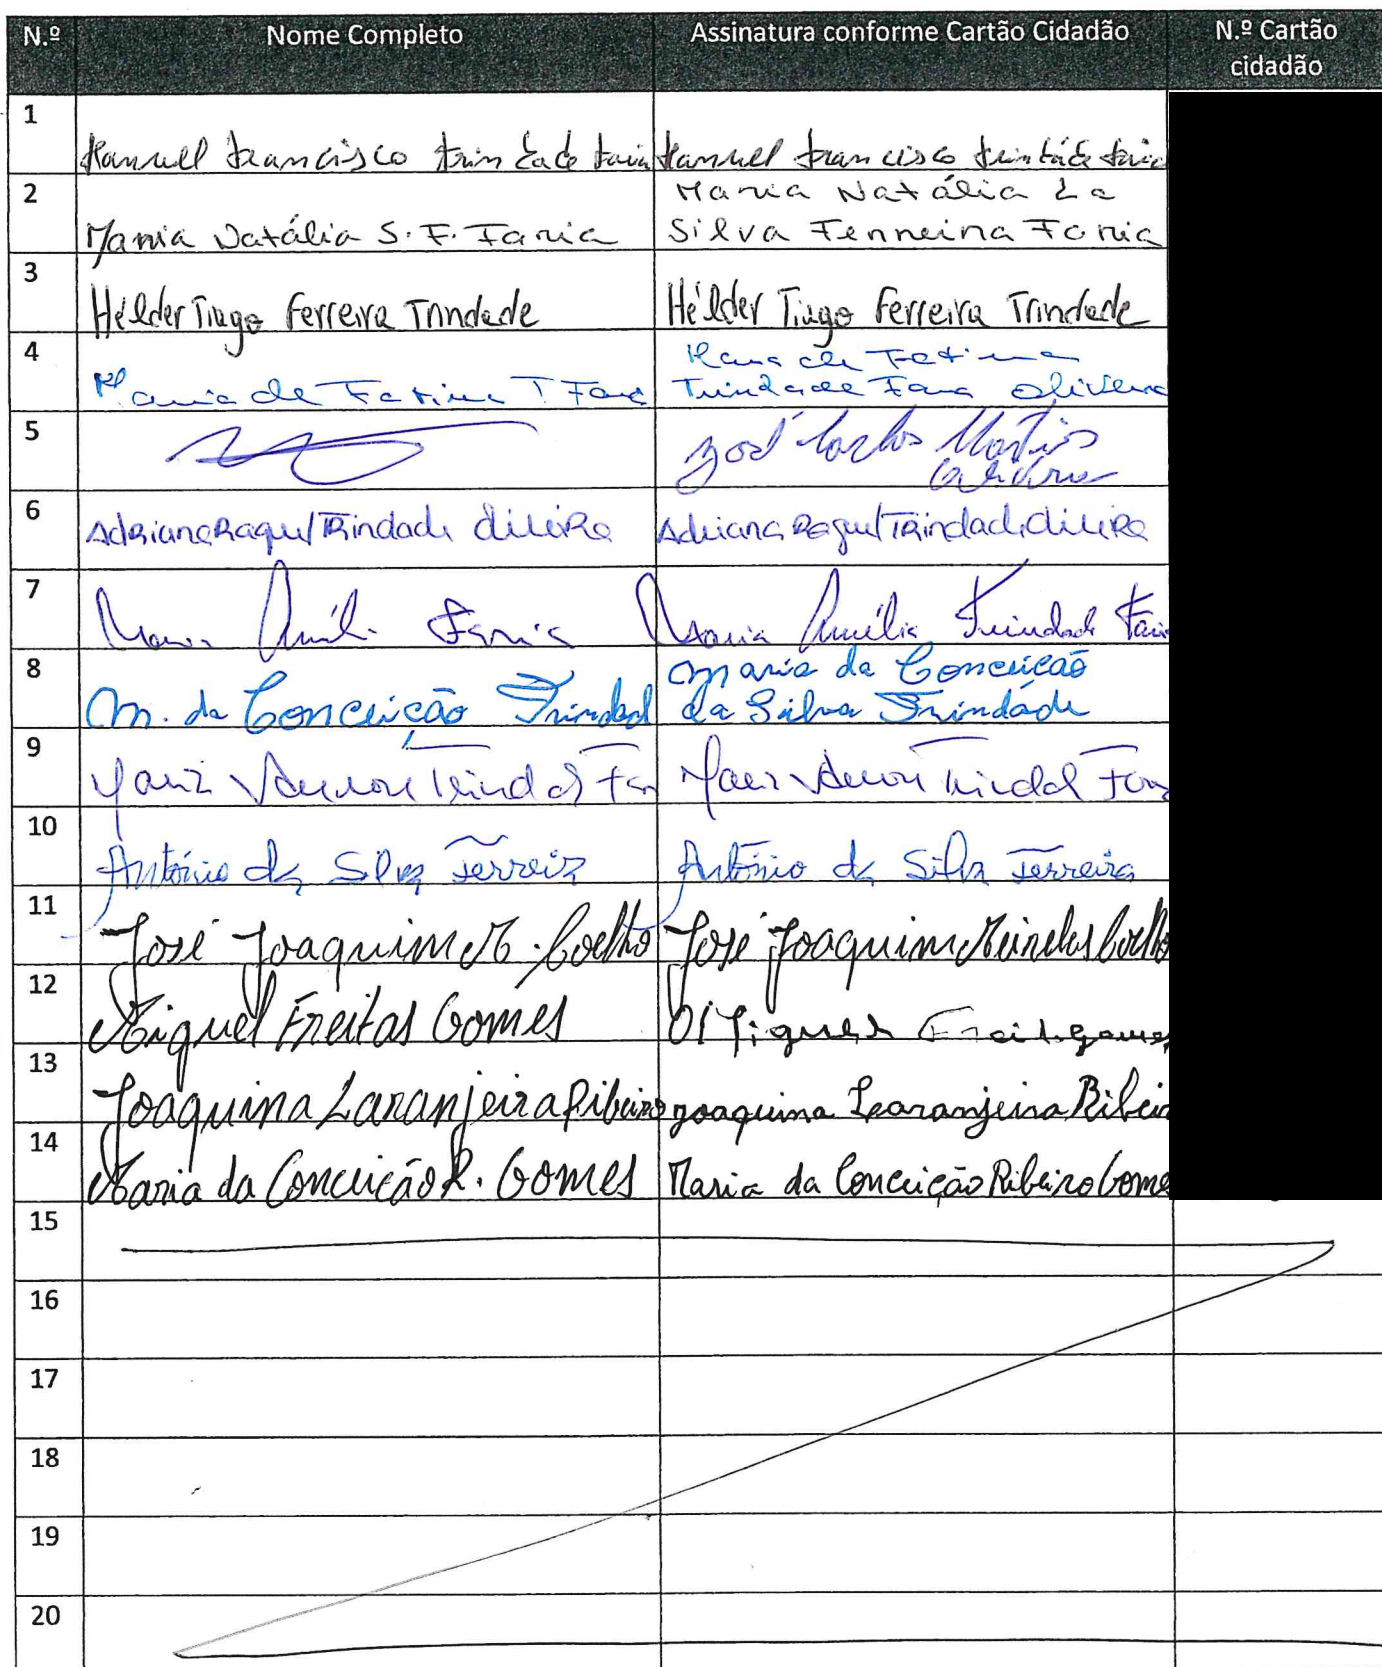 N.º Nome Completo Assinatura conforme Cartão Cidadão N.º Cartão
cidadão
1
Manuel Francisco Trindade Faria Manuel Francisco Trindade Faria
2
Maria Natália da
Maria Natália S. F. Faria Silva Ferreira Faria
3
Hélder Tiago Ferreira Trindade Hélder Tiago Ferreira Trindade
4
Maria de Fatima
Maria de Fatima T. Faria Trindade Faria Oliveira
5
José Carlos Martins
6
Adriana Raquel Trindade Oliveira Adriana Raquel Trindade Oliveira
7
Maria Amélia Faria Maria Amélia Trindade Faria
8
Maria da Conceição
M. da Conceição Trindade da Silva Trindade
9
Maria Trindade Faria Maria Trindade Faria
10
António da Silva Ferreira António da Silva Ferreira
11
José Joaquim M. Coelho José Joaquim Meireles Coelho
12
Miguel Freitas Gomes Miguel Freit. Gomes
13
Joaquina Laranjeira Ribeiro Joaquina Laranjeira Ribeir
14
Maria da Conceição R. Gomes Maria da Conceição Ribeiro Gome
15
16
17
18
19
20